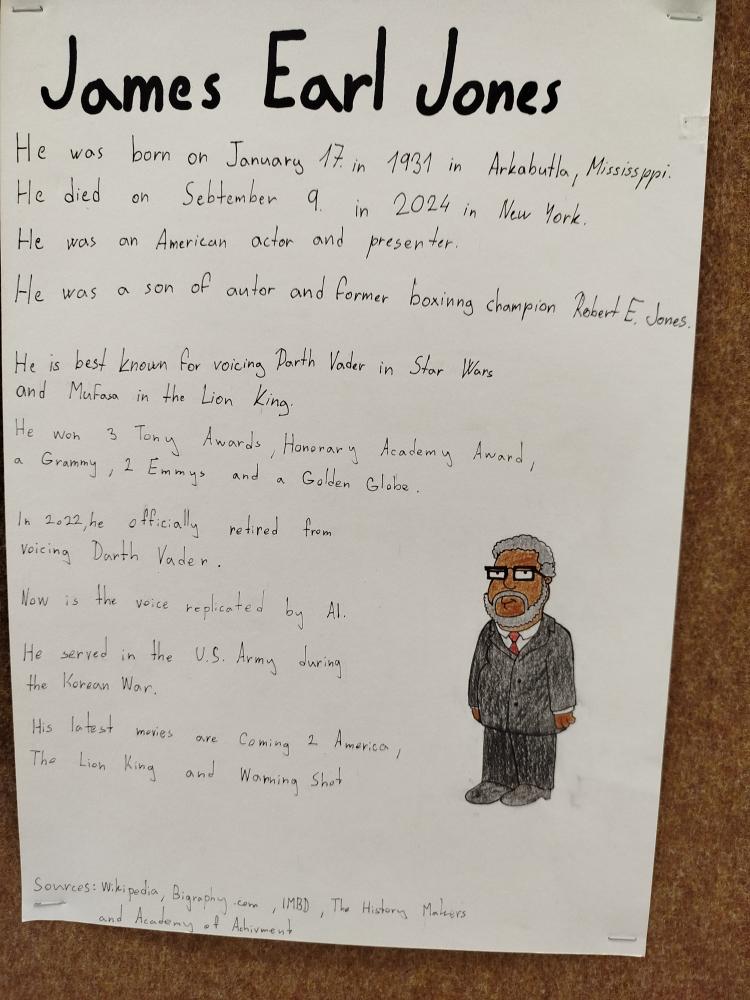 James Earl Jones
He was born on January 17. in 1931 in Arkabutla, Mississppi.
He died on Sebtember 9. in 2024 in New York.
He was an American actor and presenter.
He was a son of autor and former boxinng champion Robert E. Jones.
He is best known for voicing Darth Vader in Star Wars
and Mufasa in the Lion King.
He won 3 Tony Awards, Honorary Academy Award,
a Grammy, 2 Emmys and a Golden Globe.
In 2022,he officially retired from
voicing Darth Vader.
Now is the voice replicated by AI.
He served in the U.S. Army during
the Korean War.
His latest movies are Coming 2 America,
The Lion King and Warning Shot
Sources: Wikipedia, Bigraphy.com, IMBD, The History Makers
and Academy of Achivment